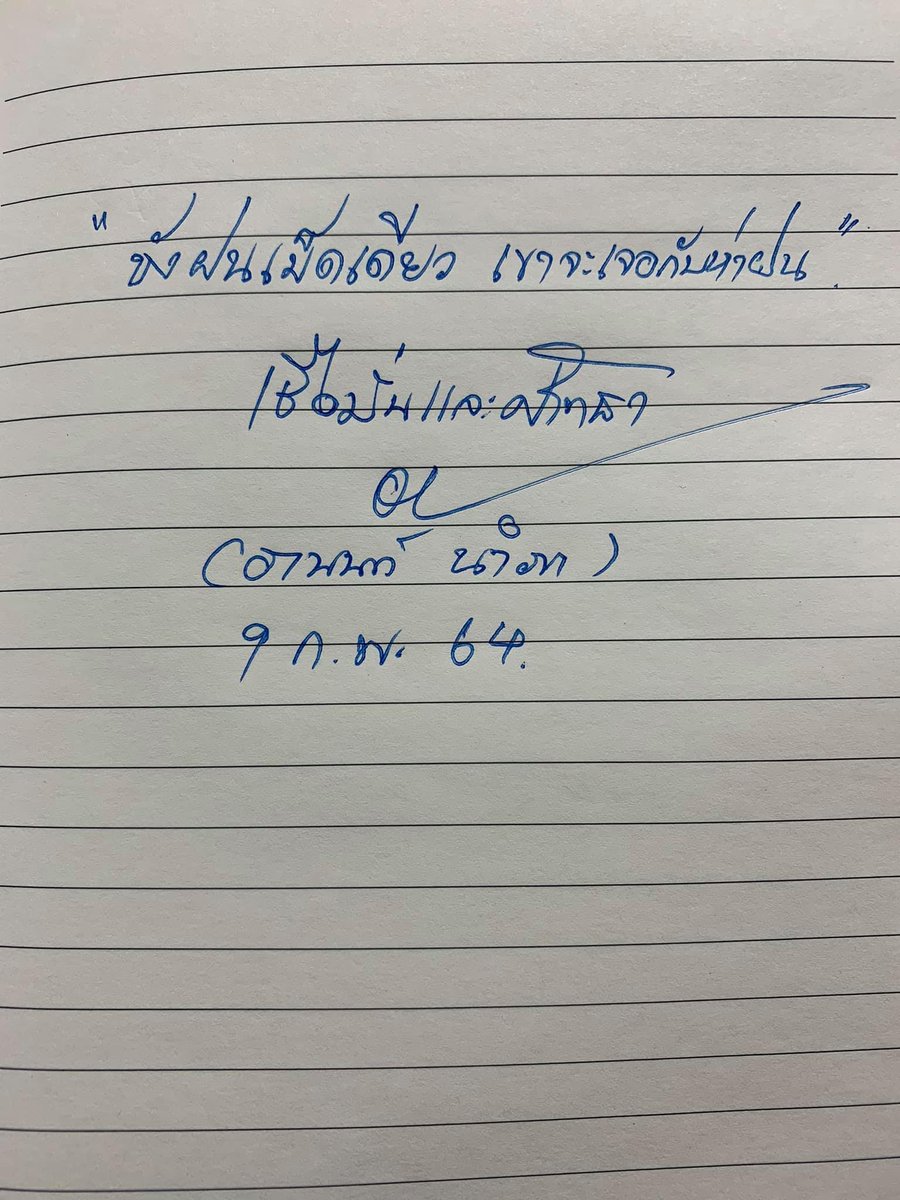 "ขังฝนเม็ดเดียว เขาจะเจอกับห่าฝน"
เชื่อมั่นและศรัทธา
(อานนท์ นำภา)
9 ก.พ. 64.